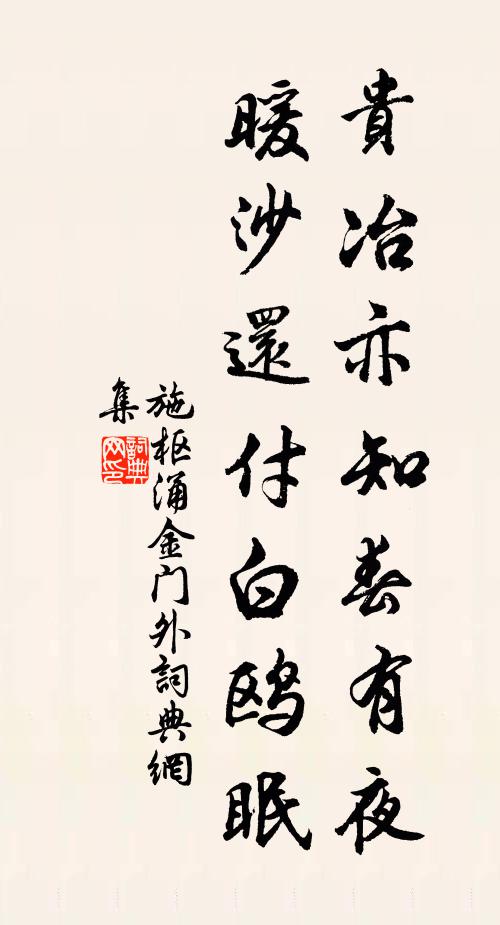 貴冶亦知春有夜
暖沙還付白鸥眠
施枢涌金门外詞典網
集
詞典网印